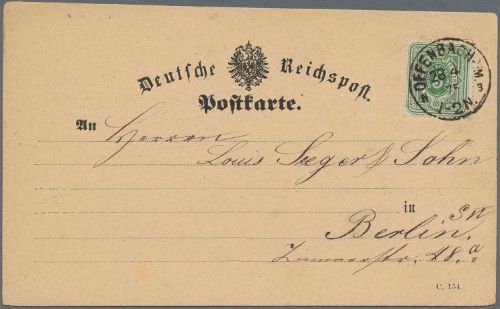 Deutsche Reichspost.
Postkarte.
OFFENBACH a. M.
28 4
75
1-2N.
3
An Herren
Louis Seeger & Sohn
in
Berlin. SW
Zimmerstr. 48.a
C. 154.